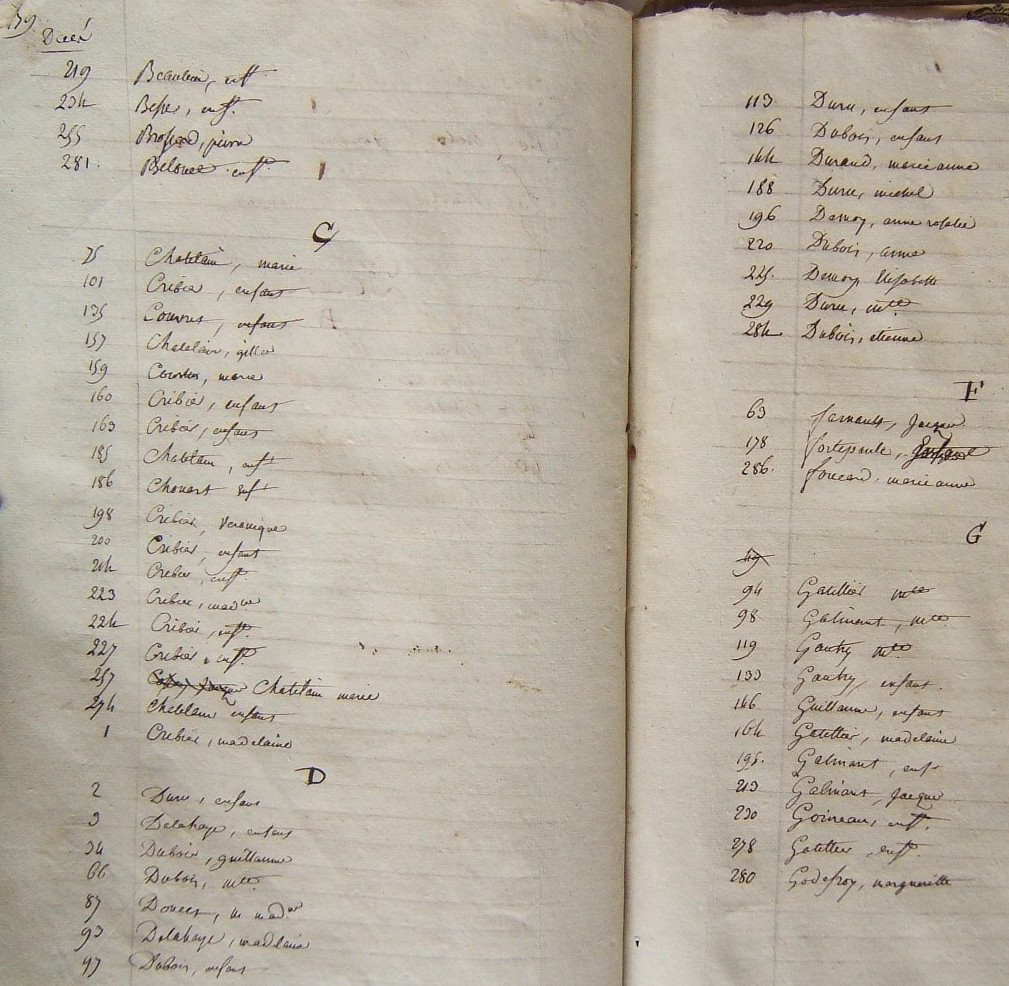 219 Beaulieu, enft
234 Besse, enft.
255 Brossard, pierre
281. Belouet enft.
C
75 Chatelain, marie
101 Cribier, enfant
135 enfant
157 Chatelain, gilles
159 marie
160 Cribier, enfant
163 Cribier, enfant
185 Chatelain, enft
186 Chouart enft
198 Cribier, Veronique
200 Cribier, enfant
214 Cribier, enft.
223 Cribier,
224 Cribier, enft.
227 Cribier, enft.
257 Chatelain marie
274 Chatelain enfant
1 Cribier, madelaine
D
2 Duru, enfant
3 Delahaye, enfant
34 Dubois, guillaume
66 Dubois, mte
87
93 Delahaye, madelaine
97 Dubois, enfant
113 Duru, enfant
126 Dubois, enfant
144 Durand, marie anne
188 Duru, michel
196 Demoy, anne rosalie
220 Dubois, anne
225. Demoy Elisabeth
229 Duru, mte
284 Dubois, etienne
F
63 farnault, Jacques
178 fortepaule,
286. foucard. marie anne
G
94 Gatellier mte
98 Galinant, mte
119 Gautry mte
133 Gautry enfant.
146 Guillaume, enfant
164 Gatellier, madelaine
195. Galinant, enft
213 Galinant, Jacques
230 Goineau, enft.
278 Gatellier, enft.
280 Godefroy, margueritte